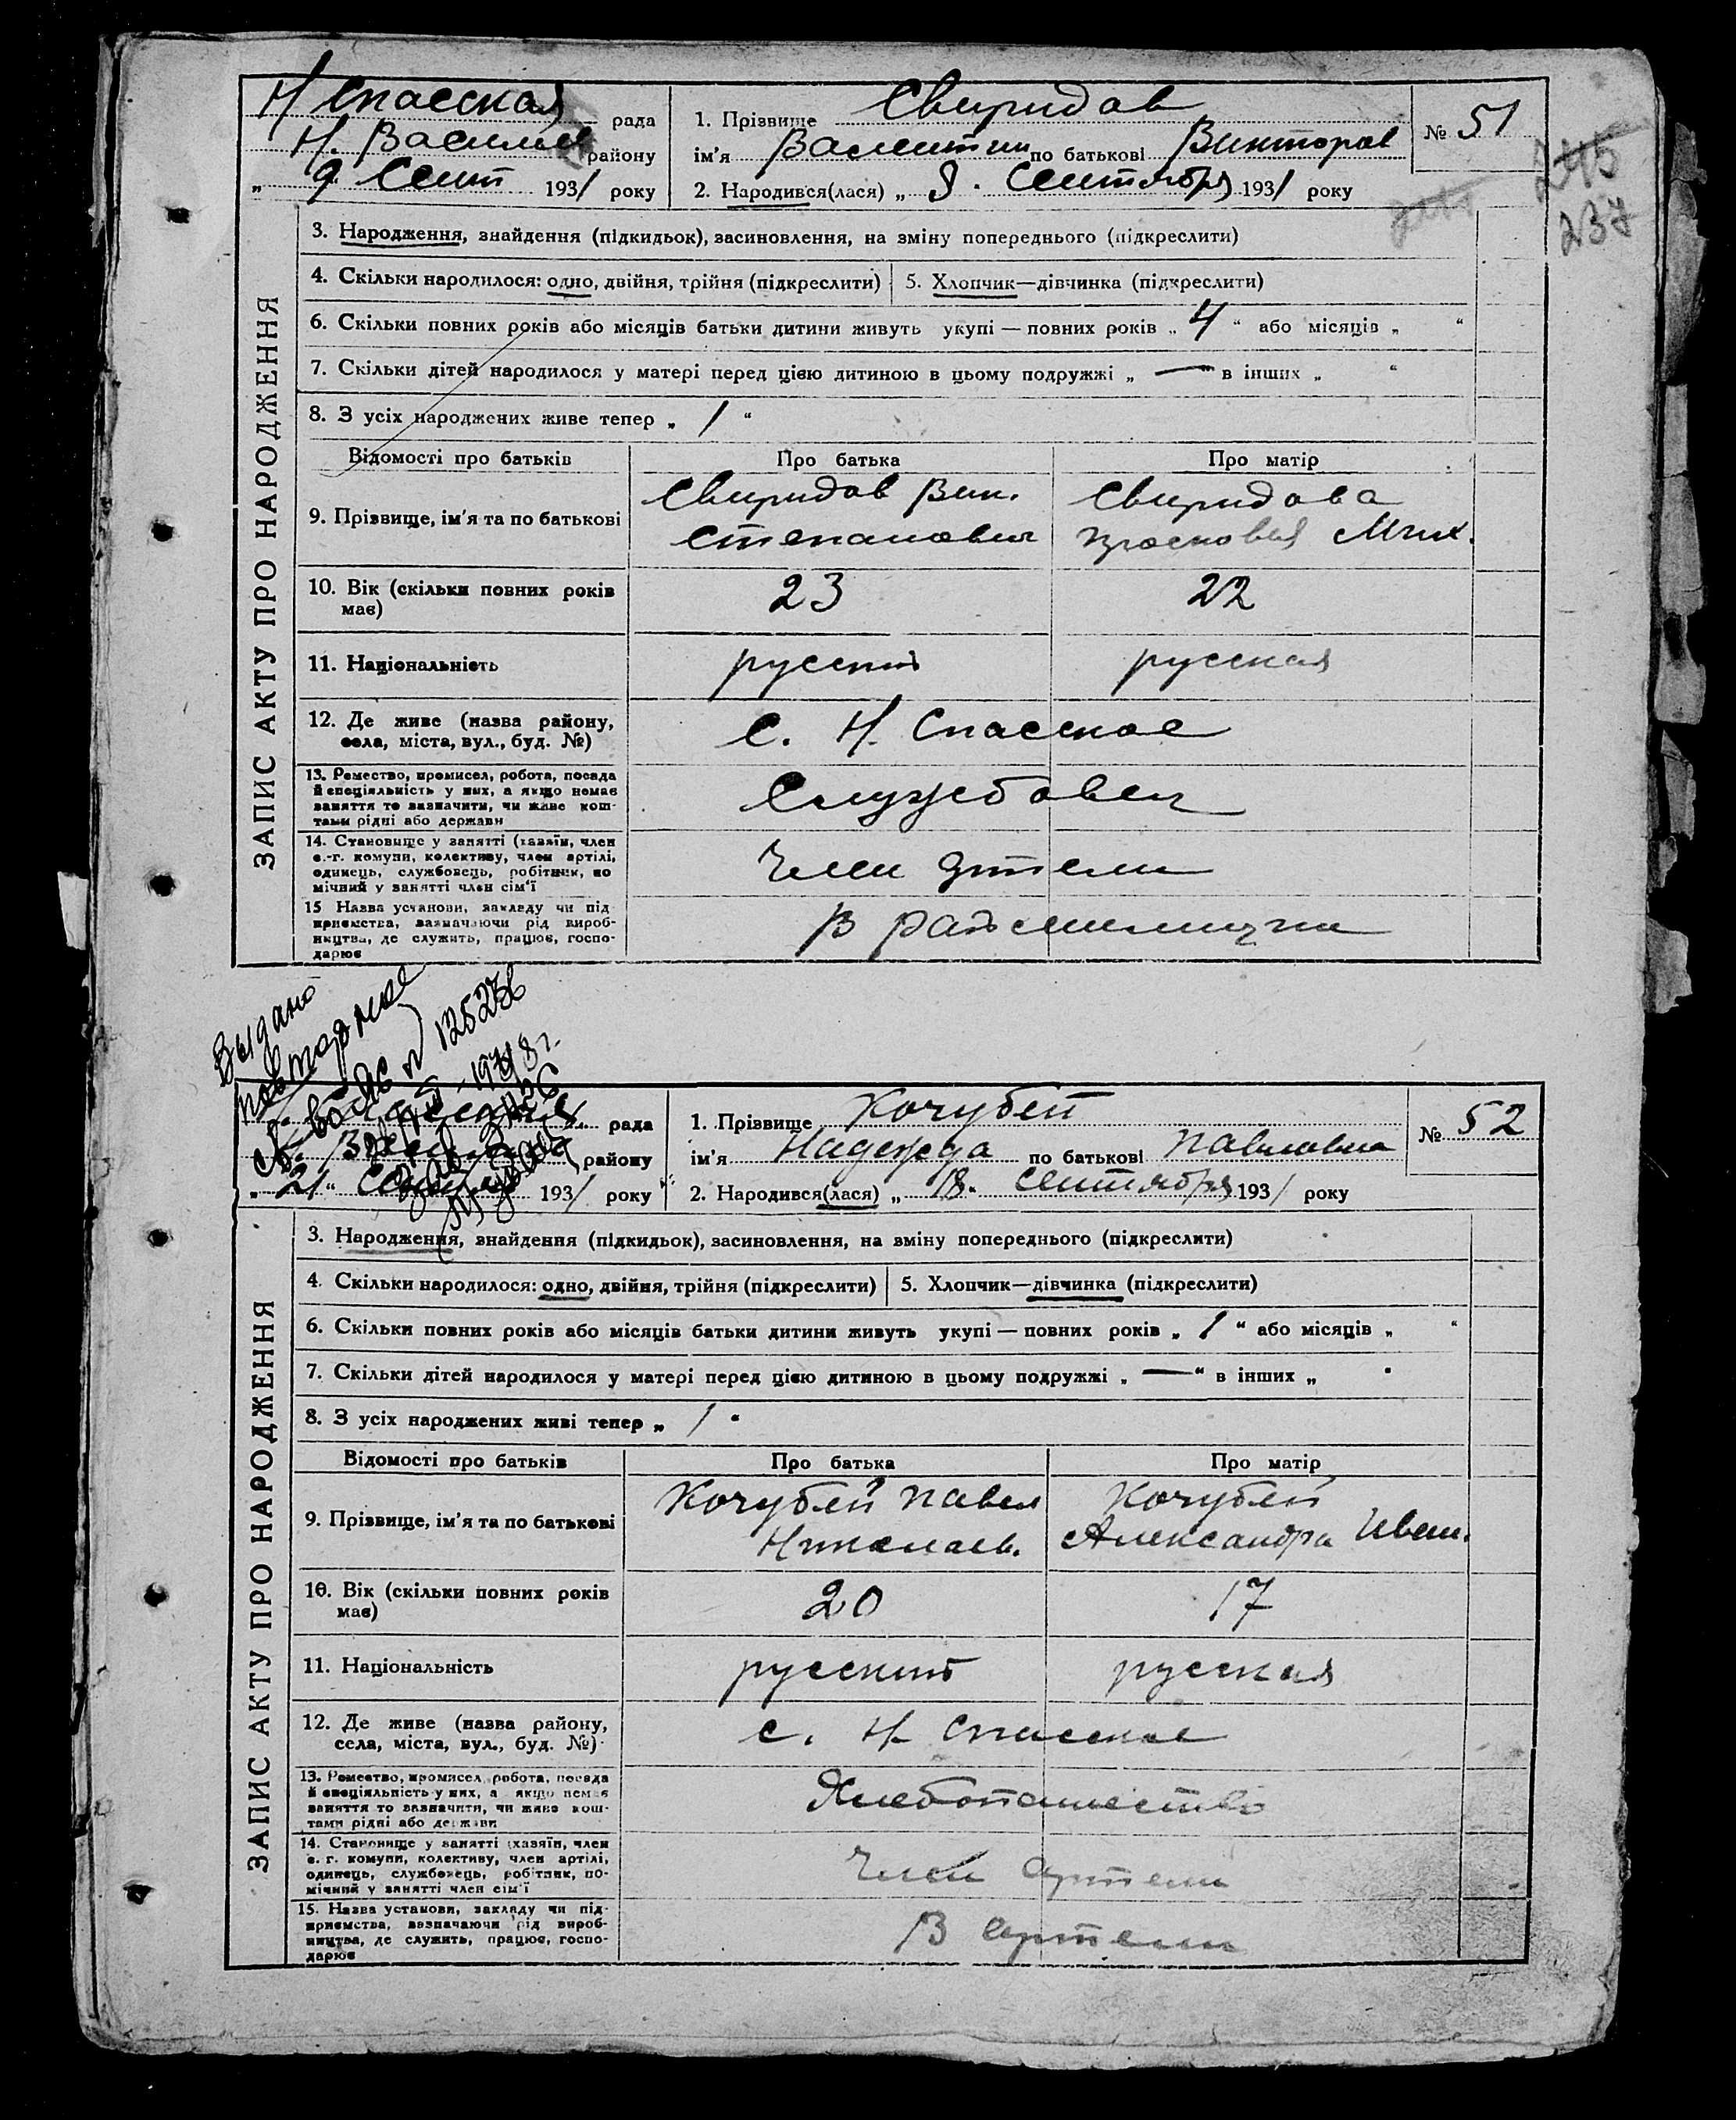 Н Спасская рада
Н. Василье району
„ 9 Сент 1931 року
1. Прізвище Свиридов
ім'я Валентин по батькові Викторов
2. Народився(лася) „ 8. Сентября 1931 року
№ 51
245
237
ЗАПИС АКТУ ПРО НАРОДЖЕННЯ
3. Народження, знайдення (підкидьок), засиновлення, на зміну попереднього (підкреслити)
4. Скільки народилося: одно, двійня, трійня (підкреслити) 5. Хлопчик—дівчинка (підкреслити)
6. Скільки повних років або місяців батьки дитини живуть укупі — повних років „ 4 “ або місяців „ “
7. Скільки дітей народилося у матері перед цією дитиною в цьому подружжі „ — “ в інших „ “
8. З усіх народжених живе тепер „ 1 “
Відомості про батьків Про батька Про матір
9. Прізвище, ім'я та по батькові
Свиридов Вик.
Степанович
Свиридова
Просковья Мих.
10. Вік (скільки повних років
має)
23 22
11. Національність русский русская
12. Де живе (назва району,
села, міста, вул., буд. №)
с. Н. Спасское
13. Ремество, промисел, робота, посада
й спеціяльність у них, а якщо немає
заняття то зазначити, чи живе кош-
тами рідні або держави
Службовец
14. Становище у занятті (хазяїн, член
с.-г. комуни, колективу, член артілі,
одинець, службовець, робітник, по
мічний у занятті член сім'ї
Член Артели
15 Назва установи, закладу чи під
приємства, зазначаючи рід вироб-
ництва, де служить, працює, госпо-
дарює
В
Выдано
повторное
св во ЯС № 125236
1978 г.
рада
району
„ 21 “ 1931 року
1. Прізвище Кочубей
ім'я Надежда по батькові Павловна
2. Народився(лася) „ 18. Сентября 1931 року
№ 52
ЗАПИС АКТУ ПРО НАРОДЖЕННЯ
3. Народження, знайдення (підкидьок), засиновлення, на зміну попереднього (підкреслити)
4. Скільки народилося: одно, двійня, трійня (підкреслити) 5. Хлопчик—дівчинка (підкреслити)
6. Скільки повних років або місяців батьки дитини живуть укупі — повних років „ 1 “ або місяців „ “
7. Скільки дітей народилося у матері перед цією дитиною в цьому подружжі „ — “ в інших „ “
8. З усіх народжених живі тепер „ 1 “
Відомості про батьків Про батька Про матір
9. Прізвище, ім'я та по батькові
Кочубей Павел
Николаев.
Кочубей
Александра Иван.
10. Вік (скільки повних років
має)
20 17
11. Національність русский русская
12. Де живе (назва району,
села, міста, вул., буд. №)
с. Н. Спасское
13. Ремество, промисел, робота, посада
й спеціяльність у них, а якщо немає
заняття то зазначити, чи живе кош-
тами рідні або держави
Хлебопашество
14. Становище у занятті (хазяїн, член
с. г. комуни, колективу, член артілі,
одинець, службовець, робітник, по-
мічний у занятті член сім'ї
Член Артели
15. Назва установи, закладу чи під-
приємства, зазначаючи рід вироб-
ництва, де служить, працює, госпо-
дарює
В Артели